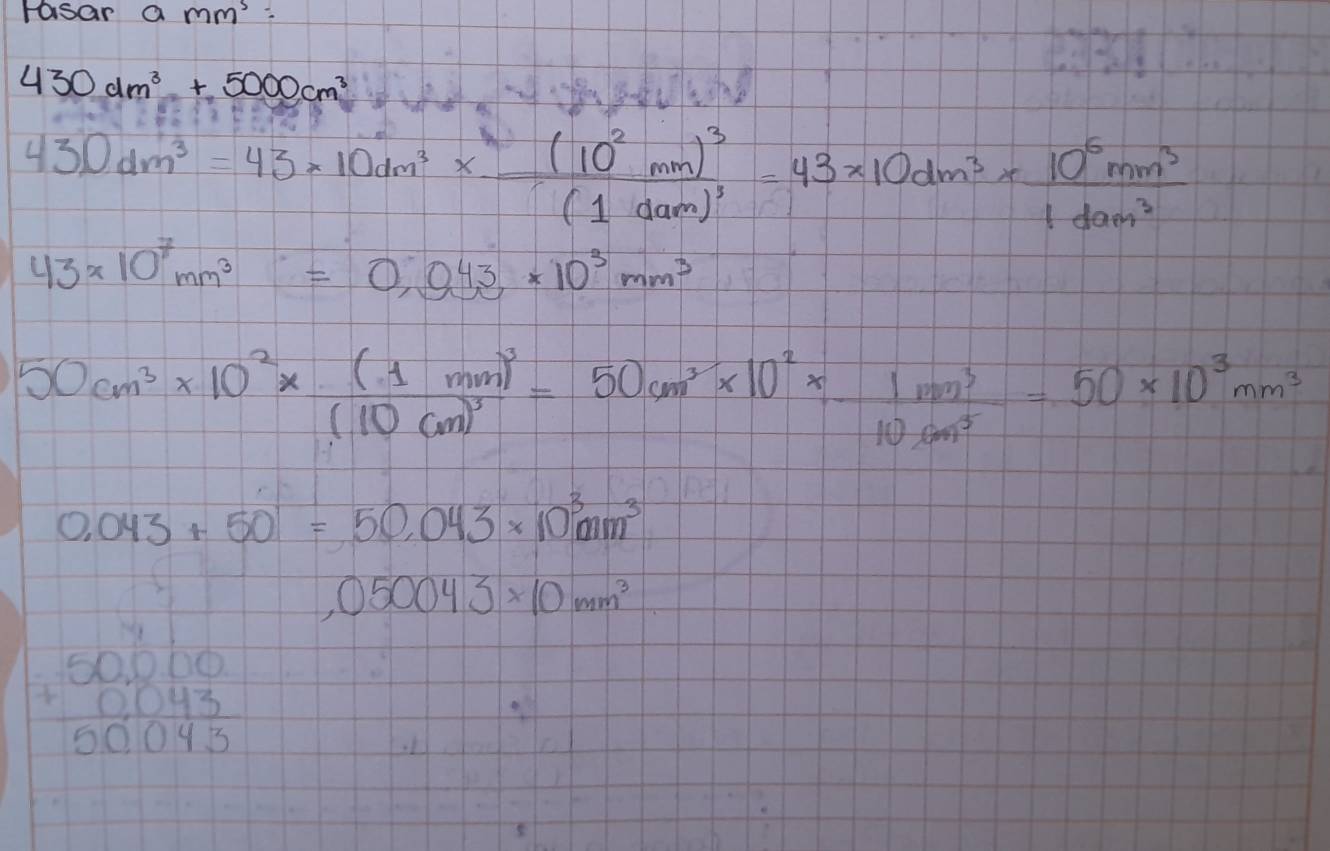 Pasar a mm³:
430 dm³ + 5000 cm³
430 dm³ = 43 × 10 dm³ × (10² mm)³ / (1 dam)³ = 43 × 10 dm³ × 10⁶ mm³ / 1 dam³
43 × 10⁷ mm³ = 0,043 × 10³ mm³
50 cm³ × 10² × (1 mm)³ / (10 cm)³ = 50 cm³ × 10² × 1 mm³ / 10 cm³ = 50 × 10³ mm³
0,043 + 50 = 50,043 × 10³ mm³
,050043 × 10 mm³
50,000
+ 0,043
50,043